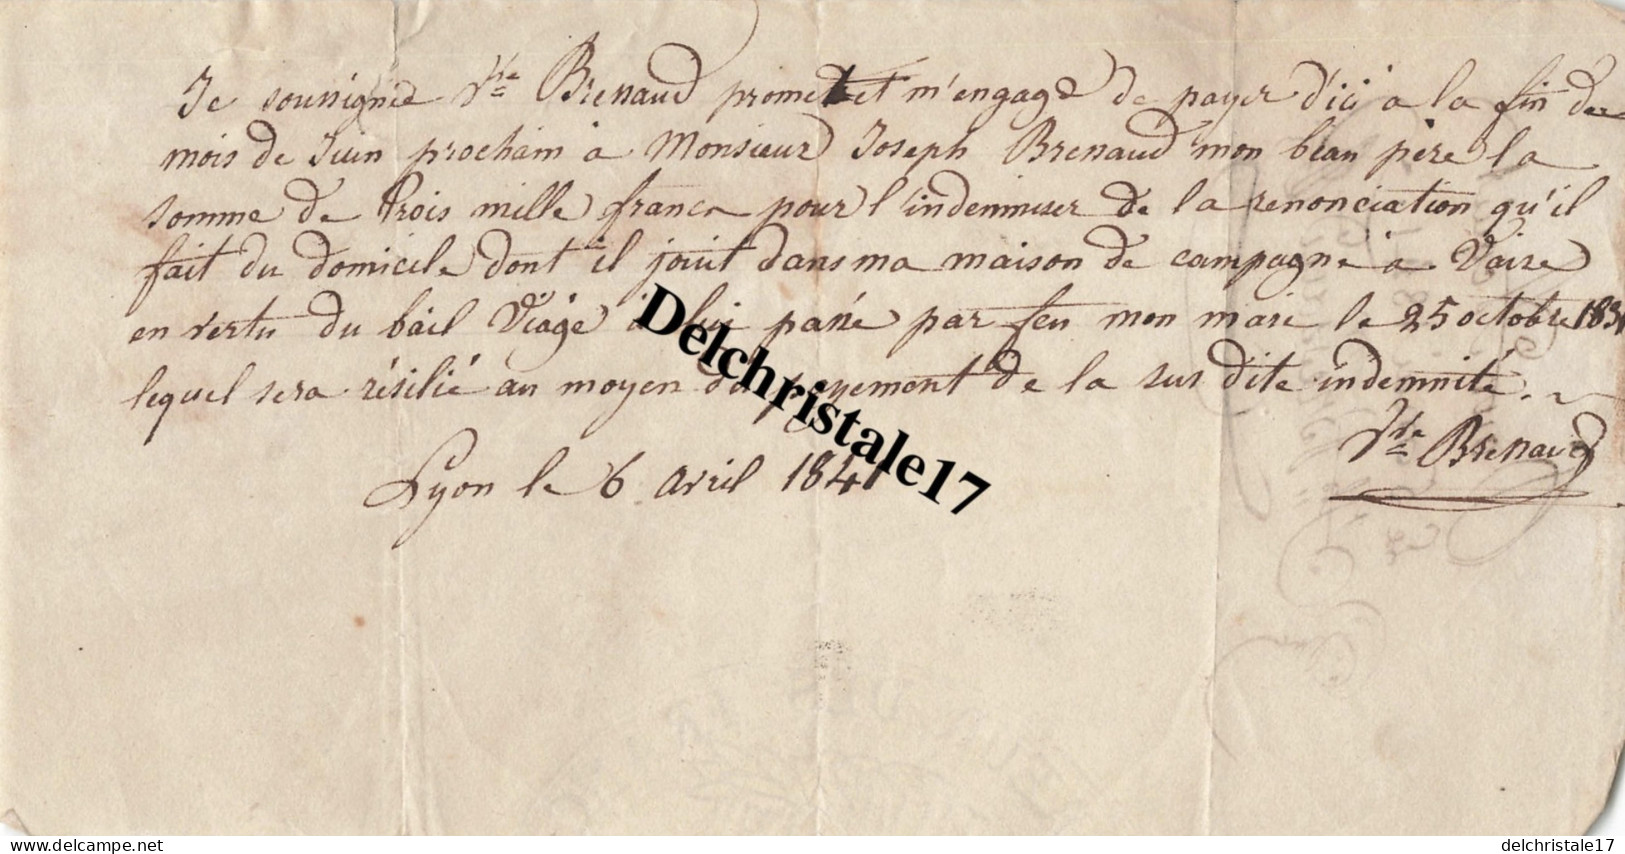 Je soussignée Vve Brenaud promet et m'engage de payer d'ici a la fin du
mois de Juin prochain à Monsieur Joseph Brenaud mon beau père la
somme de trois mille francs pour l'indemniser de la renonciation qu'il
fait du domicile dont il jouit dans ma maison de campagne à Vaise
en vertu du bail Viagé à lui passé par feu mon mari le 25 octobre
lequel sera résilié au moyen du payement de la sus dite indemnité.
Vve Brenaud
Lyon le 6 avril 1841
Delchristale17
www.delcampe.net
delchristale17